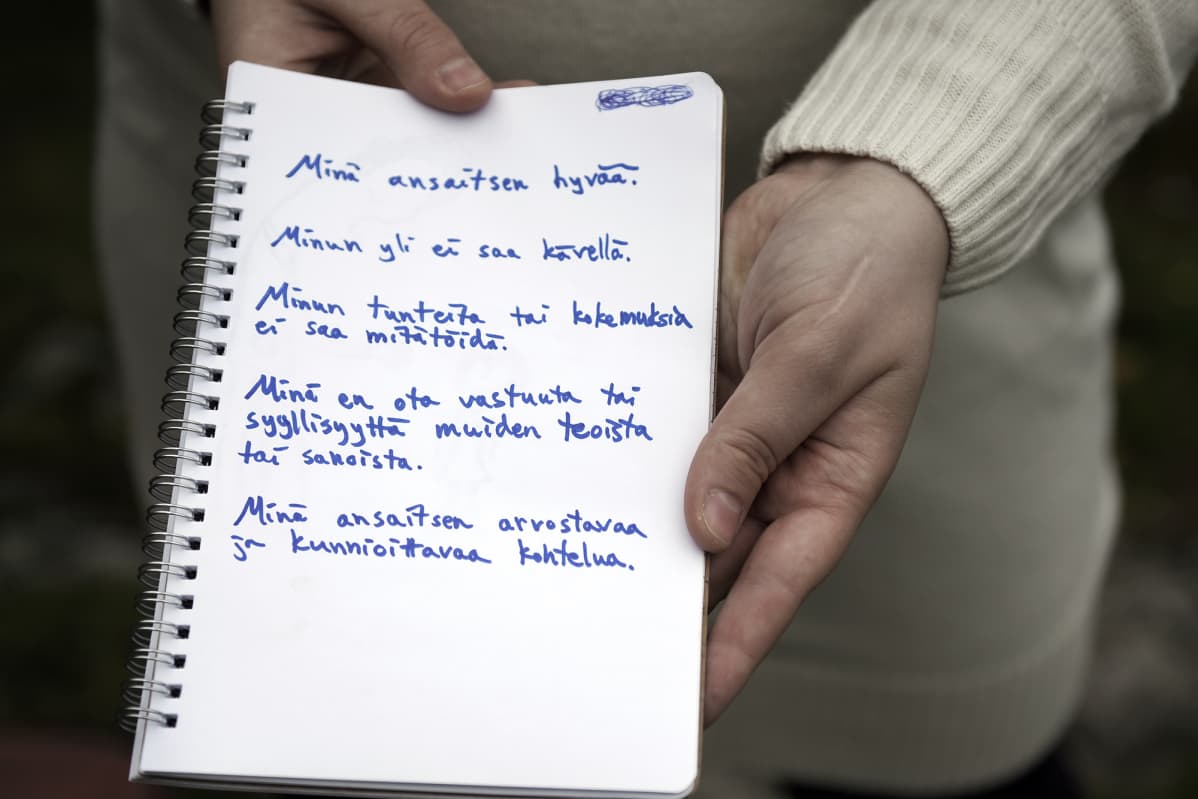 Minä ansaitsen hyvää.
Minun yli ei saa kävellä.
Minun tunteita tai kokemuksia
ei saa mitätöidä.
Minä en ota vastuuta tai
syyllisyyttä muiden teoista
tai sanoista.
Minä ansaitsen arvostavaa
ja kunnioittavaa kohtelua.